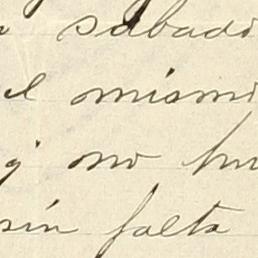 sabado
el mismo
no
sin falta